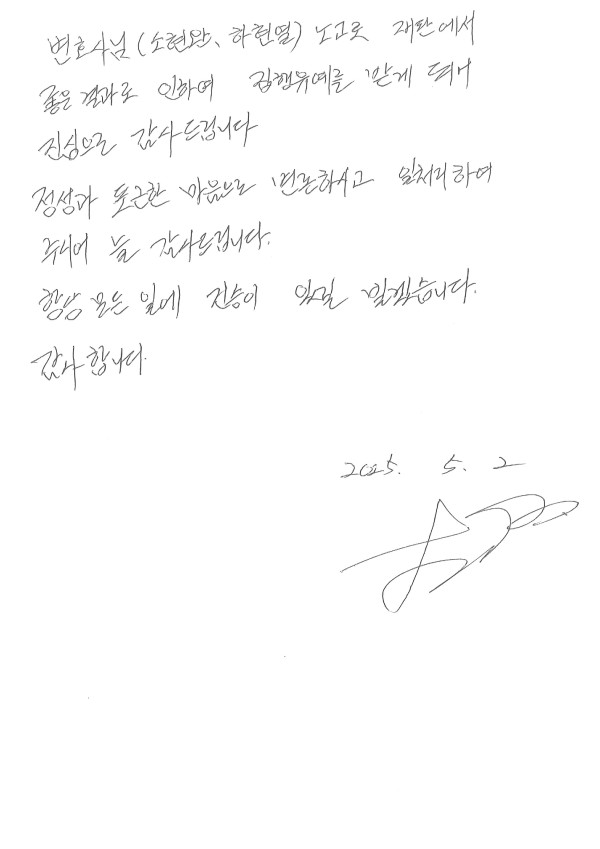 변호사님 (소현완, 하현열) 노고로 재판에서
좋은 결과로 인하여 집행유예를 받게 되어
진심으로 감사드립니다
정성과 포근한 마음으로 변론하시고 일처리하여
주니어 늘 감사드립니다.
항상 모든 일에 진승이 있길 빌겠습니다.
감사합니다.
2025. 5. 2